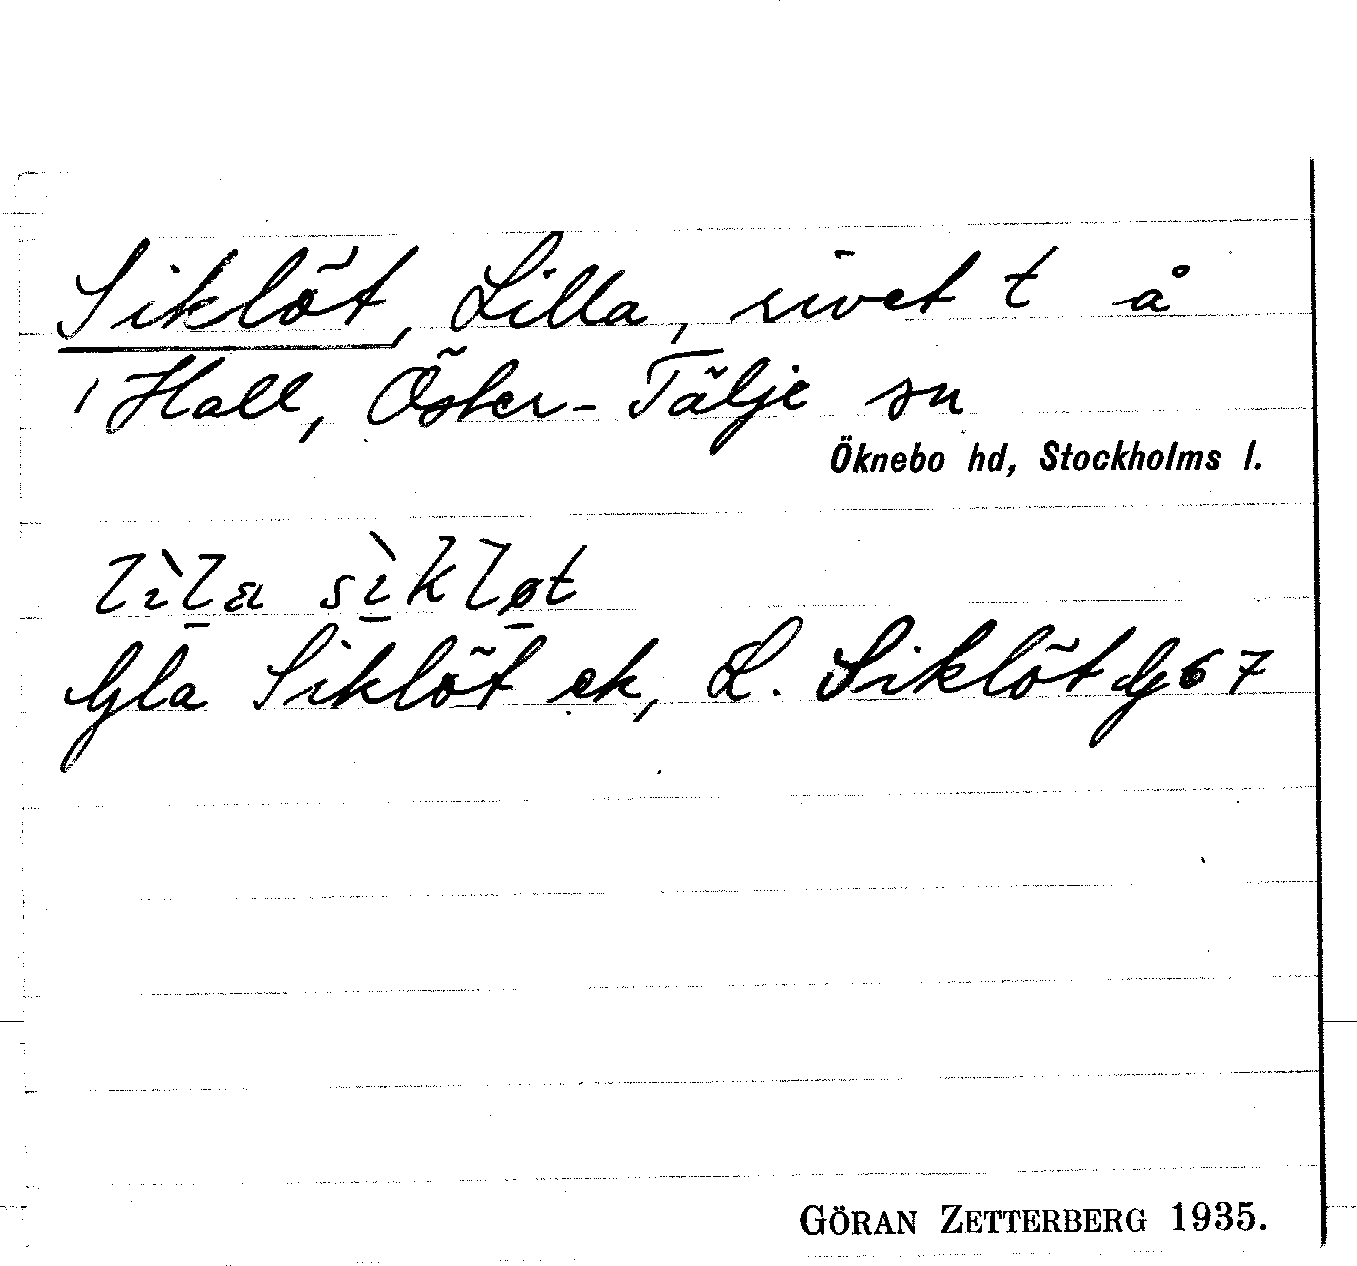 Siklöt, Lilla, rivet t å
i Hall, Öster-Tälje sn
Öknebo hd, Stockholms l.
lìla sìkløt
Gla Siklöt ek, L. Siklöt G 67
GÖRAN ZETTERBERG 1935.